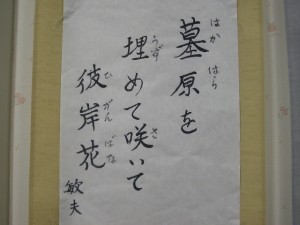 墓原を
はかはら
埋めて咲いて
うず さ
彼岸花
ひ がん ばな
敏夫